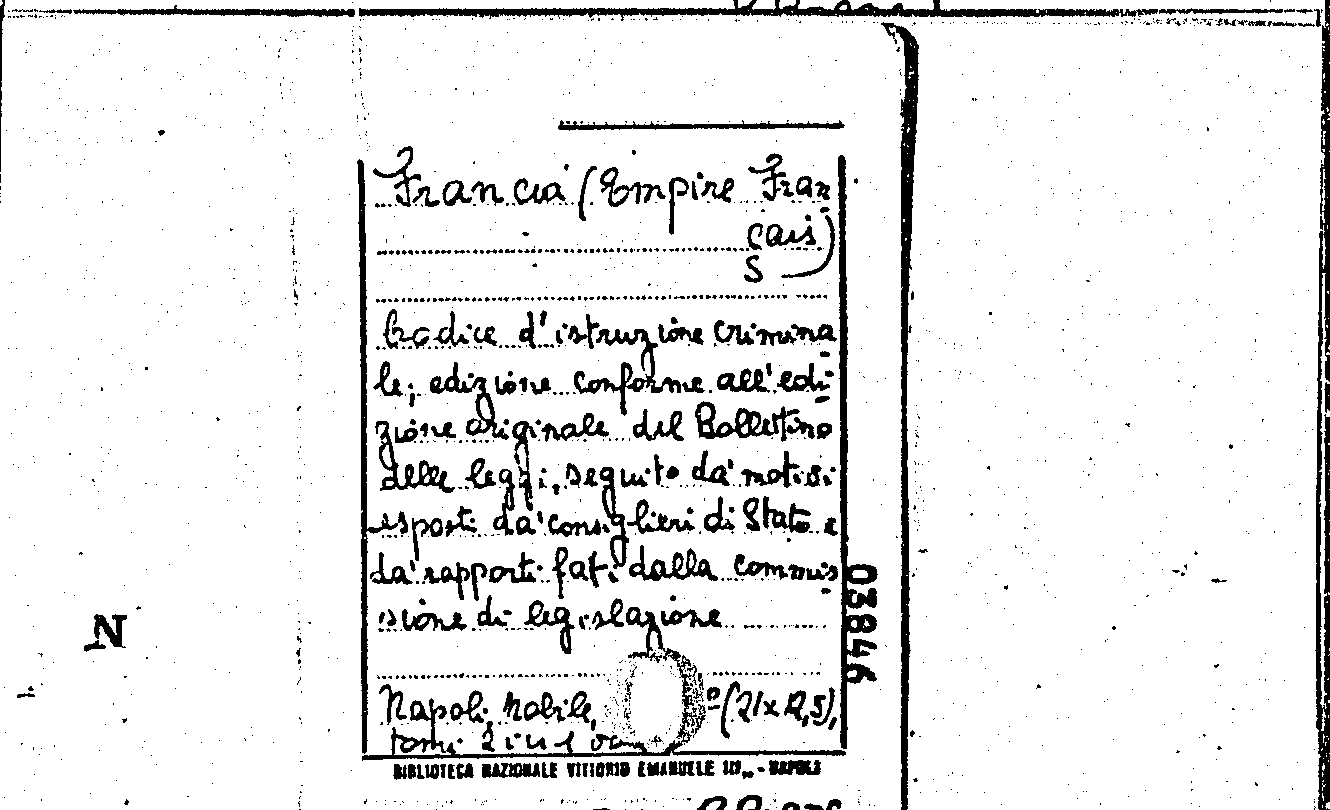 Francia (Empire Fran
çais)
S
Codice d'istruzione crimina
le; edizione conforme all'edi
zione originale del Bollettino
delle leggi, seguito da' motivi
esposti da' consiglieri di Stato e
da' rapporti fatti dalla commis
sione di legislazione
Napoli, Nobile, º (21x12,5),
tomi 2 in 1
BIBLIOTECA NAZIONALE VITTORIO EMANUELE III - NAPOLI
03846
N